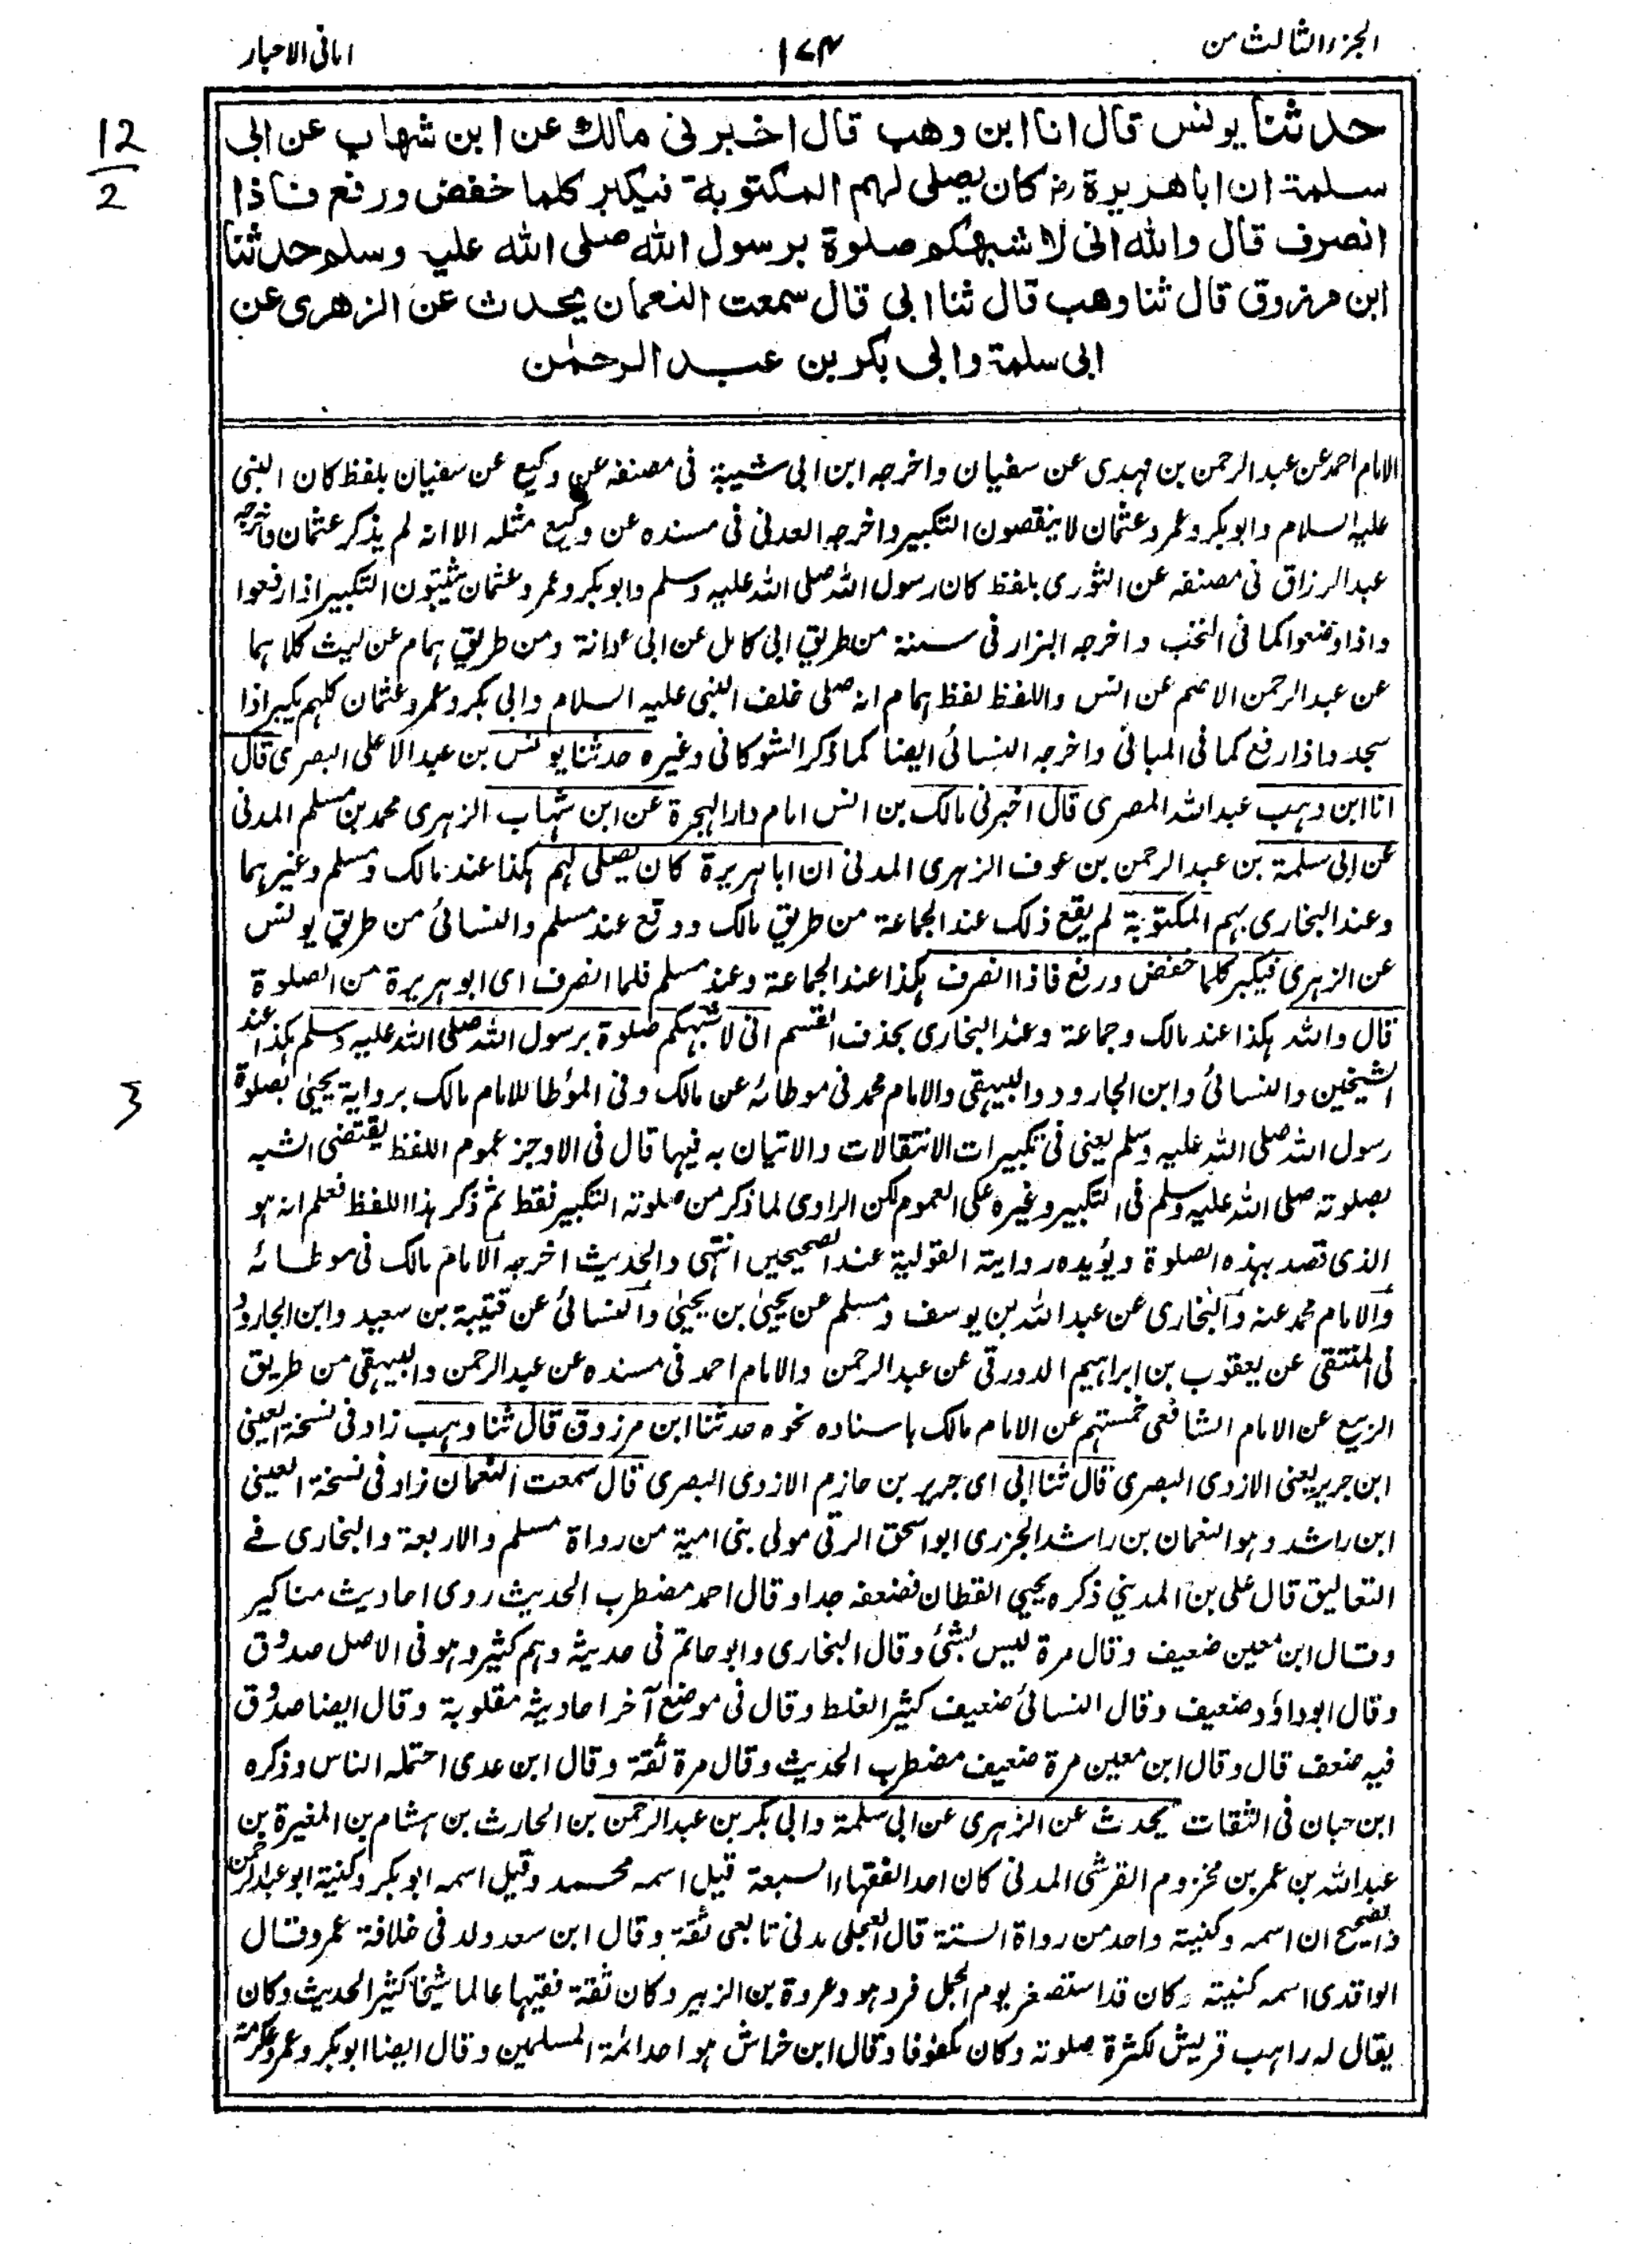 الجزء الثالث من
١٧٤
امانی الاحبار
12
2
حدثنا یونس قال انا ابن وهب قال اخبرنی مالك عن ابن شهاب عن ابی
سلمة ان ابا هریرة رض کان یصلی لهم المکتوبة فیکبر کلما خفض ورفع فاذا
انصرف قال والله انی لا شبهکم صلوة برسول الله صلی الله علیه وسلم حدثنا
ابن مرزوق قال ثنا وهب قال ثنا ابی قال سمعت النعمان یحدث عن الزهری عن
ابی سلمة وابی بکر بن عبد الرحمٰن
الامام احمد عن عبد الرحمن بن مهدی عن سفیان واخرجه ابن ابی شیبة فی مصنفه عن وکیع عن سفیان بلفظ کان النبی
علیه السلام وابو بکر وعمر وعثمان لا ینقصون التکبیر واخرجه العدنی فی مسنده عن وکیع مثله الا انه لم یذکر عثمان واخرجه
عبد الرزاق فی مصنفه عن الثوری بلفظ کان رسول الله صلی الله علیه وسلم وابو بکر وعمر وعثمان یثبتون التکبیر اذا رفعوا
واذا وضعوا کما فی النخب واخرجه البزار فی سننه من طریق ابی کامل عن ابی عوانة ومن طریق همام عن لیث کلاهما
عن عبد الرحمن الاصم عن انس واللفظ لفظ همام انه صلی خلف النبی علیه السلام وابی بکر وعمر وعثمان کلهم یکبر اذا
سجد واذا رفع کما فی المبانی واخرجه النسائی ایضا کما ذکر الشوکانی وغیره حدثنا یونس بن عبد الاعلی البصری قال
انا ابن وهب عبد الله المصری قال اخبرنی مالک بن انس امام دار الهجرة عن ابن شهاب الزهری محمد بن مسلم المدنی
عن ابی سلمة بن عبد الرحمن بن عوف الزهری المدنی ان ابا هریرة کان یصلی لهم هکذا عند مالک ومسلم وغیرهما
وعند البخاری بهم المکتوبة لم یقع ذلک عند الجماعة من طریق مالک ووقع عند مسلم والنسائی من طریق یونس
عن الزهری فیکبر کلما خفض ورفع فاذا انصرف هکذا عند الجماعة وعند مسلم فلما انصرف ای ابو هریرة من الصلوة
قال والله هکذا عند مالک وجماعة وعند البخاری بحذف القسم انی لا شبهکم صلوة برسول الله صلی الله علیه وسلم هکذا عند
الشیخین والنسائی وابن الجارود والبیهقی والامام محمد فی موطائه عن مالک وفی المؤطا للامام مالک بروایة یحییٰ بصلوة
3
رسول الله صلی الله علیه وسلم یعنی فی تکبیرات الانتقالات والاتیان به فیها قال فی الاوجز عموم اللفظ یقتضی الشبه
بصلوته صلی الله علیه وسلم فی التکبیر وغیره علی العموم لکن الراوی لما ذکر من صلوته التکبیر فقط ثم ذکر هذا اللفظ فعلم انه هو
الذی قصد بهذه الصلوة ویؤیده روایة القولیة عند الصحیحین انتهی والحدیث اخرجه الامام مالک فی موطائه
والامام محمد عنه والبخاری عن عبد الله بن یوسف ومسلم عن یحییٰ بن یحییٰ والنسائی عن قتیبة بن سعید وابن الجارود
فی المنتقی عن یعقوب بن ابراهیم الدورقی عن عبد الرحمن والامام احمد فی مسنده عن عبد الرحمن والبیهقی من طریق
الربیع عن الامام الشافعی خمستهم عن الامام مالک باسناده نحوه حدثنا ابن مرزوق قال ثنا وهب زاد فی نسخة العینی
ابن جریر یعنی الازدی البصری قال ثنا ابی ای جریر بن حازم الازدی البصری قال سمعت النعمان زاد فی نسخة العینی
ابن راشد وهو النعمان بن راشد الجزری ابو اسحق الرقی مولی بنی امیة من رواة مسلم والاربعة والبخاری فی
التعالیق قال علی بن المدینی ذکره یحیی القطان فضعفه جدا وقال احمد مضطرب الحدیث روی احادیث مناکیر
وقال ابن معین ضعیف وقال مرة لیس بشئ وقال البخاری وابو حاتم فی حدیثه وهم کثیر وهو فی الاصل صدوق
وقال ابو داؤد ضعیف وقال النسائی ضعیف کثیر الغلط وقال فی موضع آخر احادیثه مقلوبة وقال ایضا صدوق
فیه ضعف قال وقال ابن معین مرة ضعیف مضطرب الحدیث وقال مرة ثقة وقال ابن عدی احتمله الناس وذکره
ابن حبان فی الثقات یحدث عن الزهری عن ابی سلمة وابی بکر بن عبد الرحمن بن الحارث بن هشام بن المغیرة بن
عبد الله بن عمر بن مخزوم القرشی المدنی کان احد الفقهاء السبعة قیل اسمه محمد وقیل اسمه ابو بکر وکنیة ابو عبد الرحمن
والصحیح ان اسمه وکنیته واحد من رواة الستة قال العجلی مدنی تابعی ثقة وقال ابن سعد ولد فی خلافة عمر وقال
الواقدی اسمه کنیته وکان قد استصغر یوم الجمل فرد هو وعروة بن الزبیر وکان ثقة فقیها عالما شیخا کثیر الحدیث وکان
یقال له راهب قریش لکثرة صلوته وکان مکفوفا وقال ابن خراش هو احد ائمة المسلمین وقال ایضا ابو بکر وعمر وعکرمة